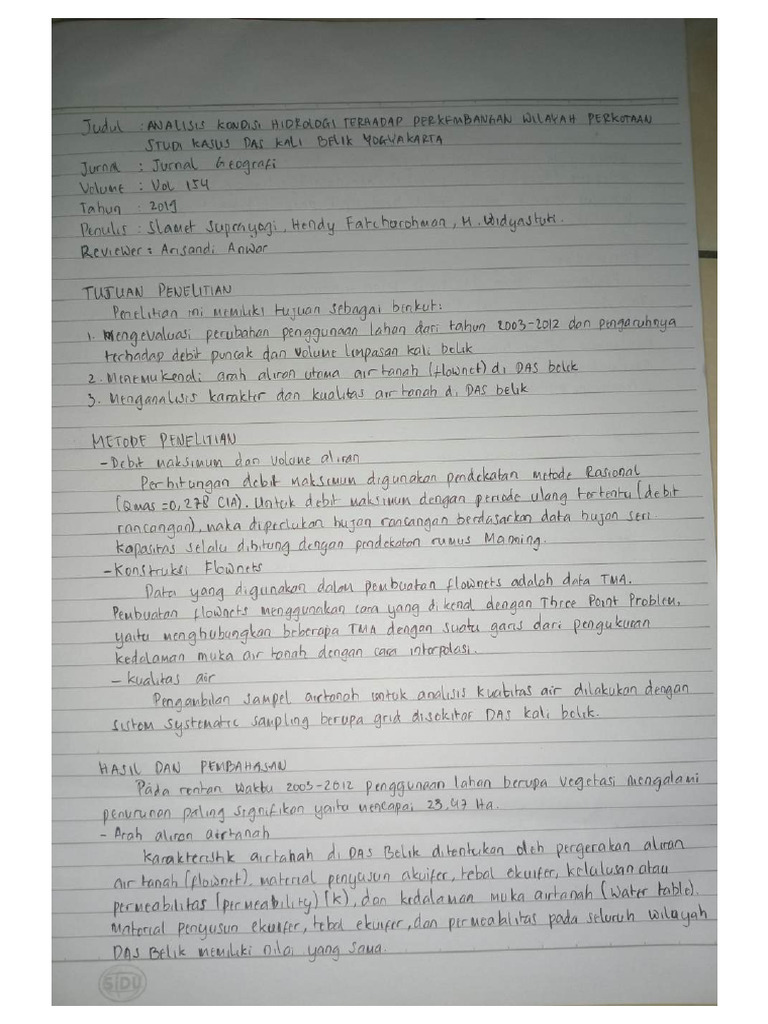 Judul : ANALISIS KONDISI HIDROLOGI TERHADAP PERKEMBANGAN WILAYAH PERKOTAAN
STUDI KASUS DAS KALI BELIK YOGYAKARTA
Jurnal : Jurnal Geografi
Volume : Vol 154
Tahun : 2019
Penulis : Slamet Suprayogi, Hendy Fatchurohman, M. Widyastuti.
Reviewer : Arisandi Anwar
TUJUAN PENELITIAN
Penelitian ini memiliki tujuan sebagai berikut:
1. Mengevaluasi perubahan penggunaan lahan dari tahun 2003-2012 dan pengaruhnya
terhadap debit puncak dan volume limpasan kali belik
2. Menemukendli arah aliran utama air tanah (flownet) di DAS belik
3. Menganalisis karakter dan kualitas air tanah di DAS belik
METODE PENELITIAN
- Debit maksimum dan volume aliran
Perhitungan debit maksimum digunakan pendekatan metode Rasional
(Qmas = 0,278 CIA). Untuk debit maksimum dengan periode ulang tertentu (debit
rancangan), maka diperlukan hujan rancangan berdasarkan data hujan seri.
kapasitas selalu dihitung dengan pendekatan rumus Manning.
- Konstruksi Flownets
Data yang digunakan dalam pembuatan flownets adalah data TMA.
Pembuatan flownets menggunakan cara yang di kenal dengan Three Point Problem,
yaitu menghubungkan beberapa TMA dengan suatu garis dari pengukuran
kedalaman muka air tanah dengan cara interpolasi.
- kualitas air
Pengambilan sampel airtanah untuk analisis kualitas air dilakukan dengan
sistem systematic sampling berupa grid disekitar DAS kali belik.
HASIL DAN PEMBAHASAN
Pada rentan waktu 2003-2012 penggunaan lahan berupa vegetasi mengalami
penurunan paling signifikan yaitu mencapai 23,47 Ha.
- Arah aliran airtanah
Karakteristik airtanah di DAS Belik ditentukan oleh pergerakan aliran
air tanah (flownet), material penyusun akuifer, tebal ekuifer, kelulusan atau
permeabilitas (permeability) (k), dan kedalaman muka airtanah (water table).
Material penyusun ekuifer, tebal ekuifer, dan permeabilitas pada seluruh wilayah
DAS Belik memiliki nilai yang sama.
SIDU